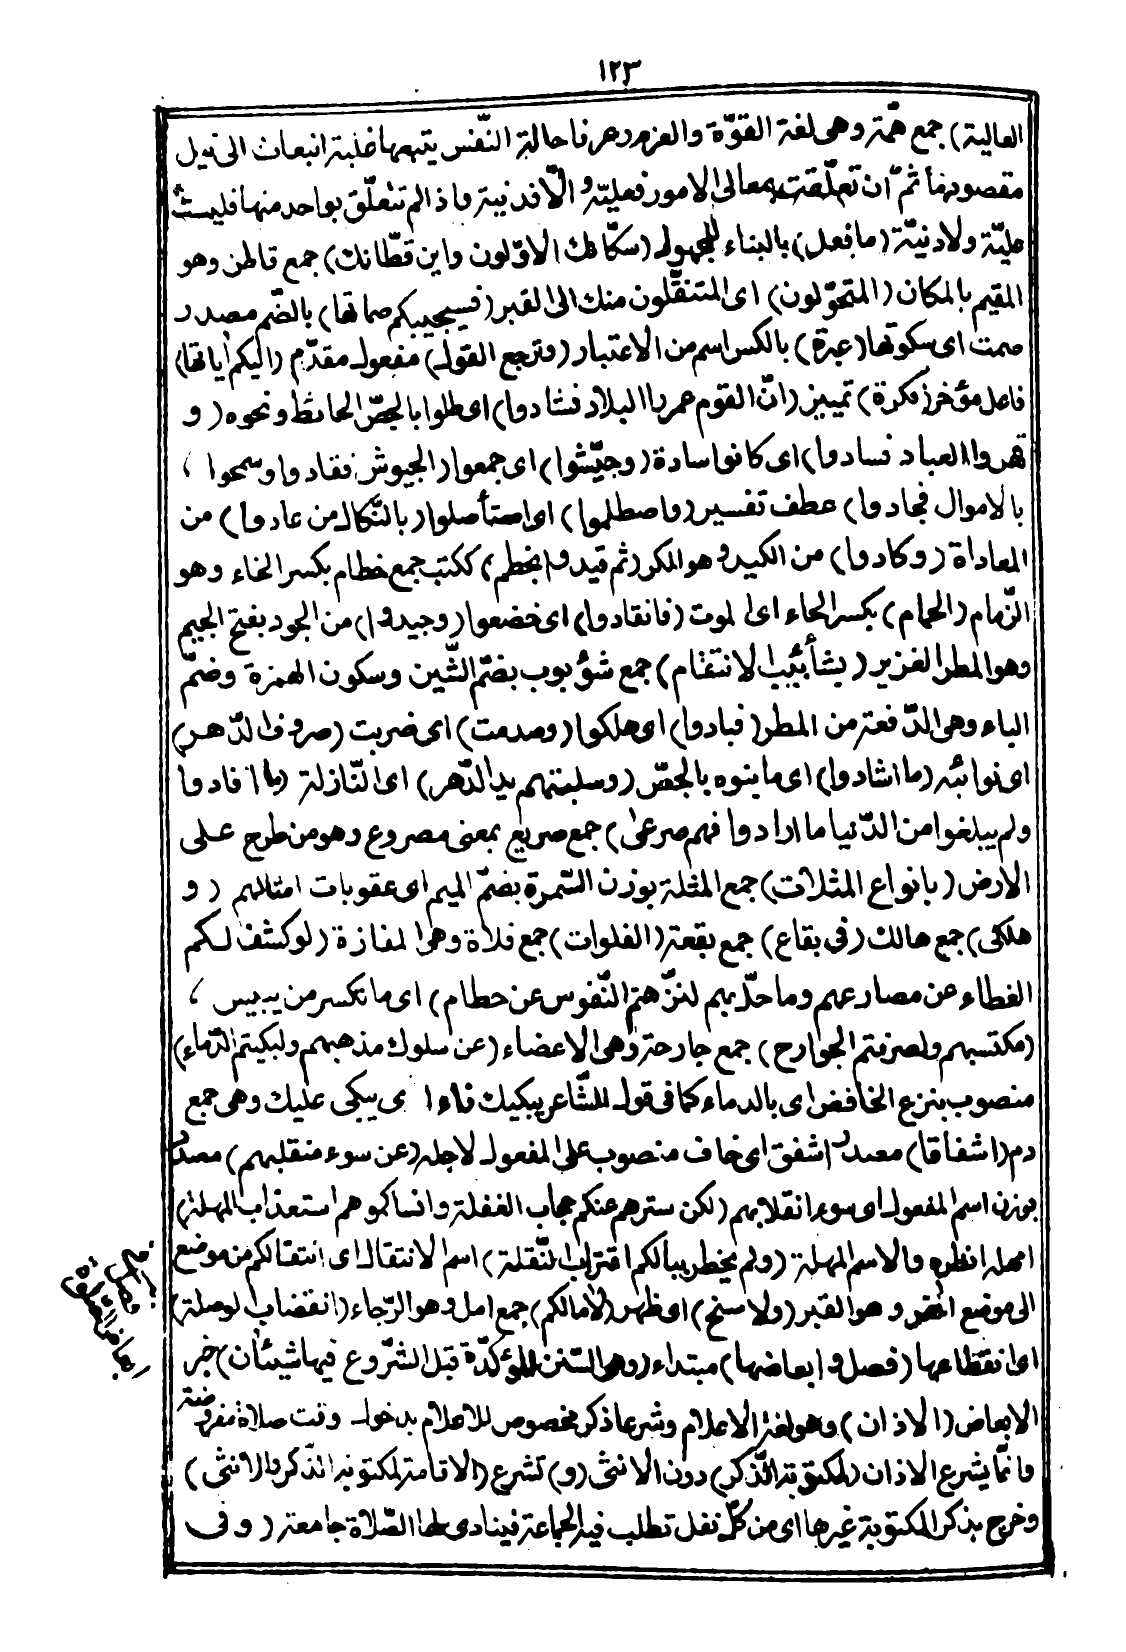 ١٢٣
العالية) جمع همّة وهى لغة القوّة والعزم وعرفا حالة النّفس يتبعها غلبة انبعاث الى نيل
مقصودها ثمّ ان تعلّقت بمعالى الامور فعليّة والّا فدنيية واذا لم تتعلّق بواحد منها فليست
عليّة ولا دنيّة (ما فعل) بالبناء للمجهول (سكّانك الاوّلون واين قطّانك) جمع قاطن وهو
المقيم بالمكان (المتحوّلون) اى المتنقّلون منك الى القبر (فسيجيبكم صماتها) بالضّم مصدر
صمت اى سكوتها (عبرة) بالكسر اسم من الاعتبار (وترجع القول) مفعول مقدّم (اليكم اياتها)
فاعل مؤخر (فكرة) تمييز (انّ القوم عمروا البلاد فشادوا) اى طلوا بالجصّ الحائط ونحوه (و
قهروا العباد فسادوا) اى كانوا سادة (وجيّشوا) اى جمعوا (الجيوش فقادوا وسمحوا ،
بالاموال فجادوا) عطف تفسير (واصطلموا) اى استأصلوا (بالنّكال من عادوا) من
المعاداة (وكادوا) من الكيد وهو المكر (ثم قيدوا بخطم) ككتب جمع خطام بكسر الخاء وهو
الزّمام (الحمام) بكسر الحاء اى الموت (فانقادوا) اى خضعوا (وجيدوا) من الجود بفتح الجيم
وهو المطر الغزير (بشأبيب الانتقام) جمع شؤبوب بضمّ الشّين وسكون الهمزة وضمّ
الباء وهى الدّفعة من المطر (فبادوا) اى هلكوا (وصدمت) اى ضربت (صروف الدّهر)
اى نوائبه (ما اشادوا) اى ما بنوه بالجصّ (وسلبتهم يد الدّهر) اى النّازلة (ما افادوا
ولم يبلغوا من الدّنيا ما ارادوا فهم صرعى) جمع صريع بمعنى مصروع وهو من طرح على
الارض (بانواع المثلات) جمع المثلة بوزن السّمرة بضمّ الميم اى عقوبات امثالهم (و
هلكى) جمع هالك (فى بقاع) جمع بقعة (الفلوات) جمع فلاة وهى المفازة (لو كشف لكم
الغطاء عن مصارعهم وما حلّ بهم لنزّهتم النّفوس عن حطام) اى ما تكسر من يبيس ،
(مكتسبهم ولصرفتم الجوارح) جمع جارحة وهى الاعضاء (عن سلوك مذهبهم ولبكيتم الدّماء)
منصوب بنزع الخافض اى بالدماء كما فى قول الشّاعر يبكيك ناء اى يبكى عليك وهى جمع
دم (اشفاقا) مصدر اشفق اى خاف منصوب على المفعول لاجله (عن سوء منقلبهم) مصدر
بوزن اسم المفعول اى سوء انقلابهم (لكن سترهم عنكم حجاب الغفلة وانساكموهم استعذاب المهلة)
امهله انظره والاسم المهلة (ولم يخطر ببالكم اقتراب النّقلة) اسم الانتقال اى انتقالكم من موضع
الى موضع اخر وهو القبر (ولا سنح) اى ظهر (لآمالكم) جمع امل وهو الرّجاء (انقضاب لوصلة)
اى انقطاعها (فصل وابعاضها) مبتداء (وهى السّنن المؤكدّة قبل الشّروع فيها شيئان) خبر
الابعاض (الاذان) وهو لغة الاعلام وشرعا ذكر مخصوص للاعلام بدخول وقت صلاة مفروضة
وانّما يشرع الاذان (لمكتوبة الذّكر) دون الانثى (و) تشرع (الاقامة لمكتوبة الذكر والانثى)
وخرج بذكر المكتوبة غيرها اى من كلّ نفل تطلب فيه الجماعة فينادى لها الصّلاة جامعة (وفى
فصل
ابعاض الصّلوة